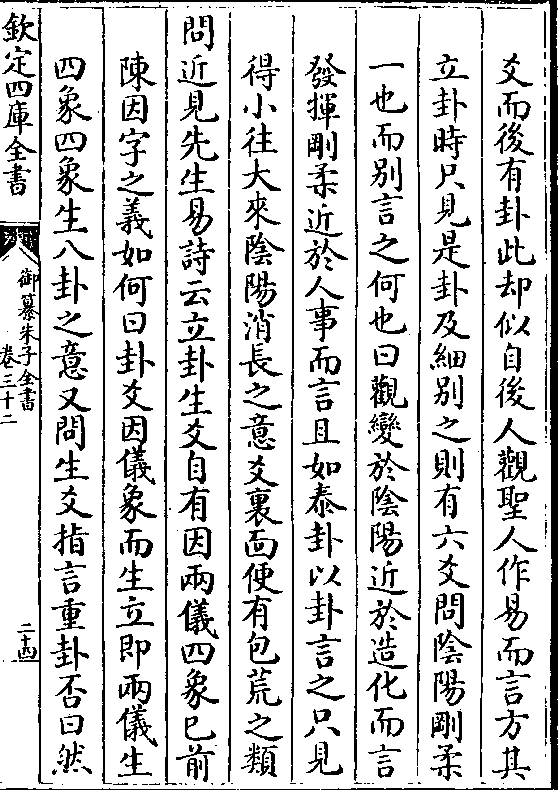 爻而後有卦此却似自後人觀聖人作易而言方其
立卦時只見是卦及細别之則有六爻問隂陽剛柔
一也而别言之何也曰觀變於隂陽近於造化而言
發揮剛柔近於人事而言且如泰卦以卦言之只見
得小往大來隂陽消長之意爻裏面便有包荒之類
問近見先生易詩云立卦生爻自有因兩儀四象已前
陳因字之義如何曰卦爻因儀象而生立即兩儀生
四象四象生八卦之意又問生爻指言重卦否曰然
欽定四庫全書
御纂朱子全書
卷三十二
二十四